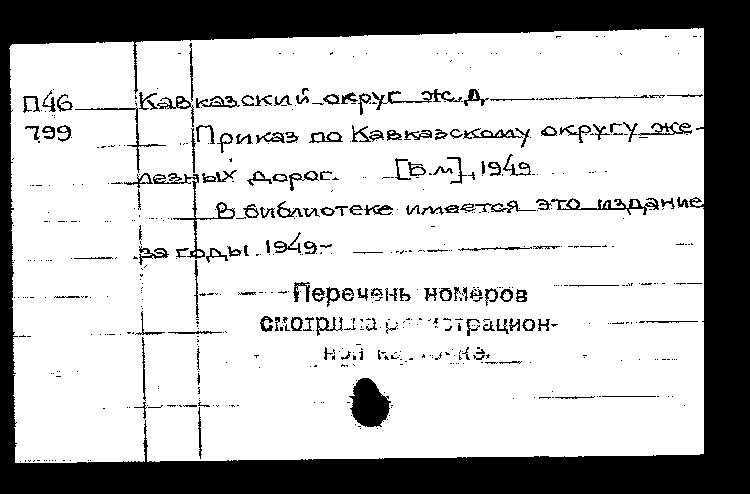 П46 Кавказский округ ж.д.
799 Приказ по Кавказскому округу же-
лезных дорог. [Б.м], 1949
В библиотеке имеется это издание
за годы: 1949-
Перечень номеров
смотри на регистрацион-
ной карточке.